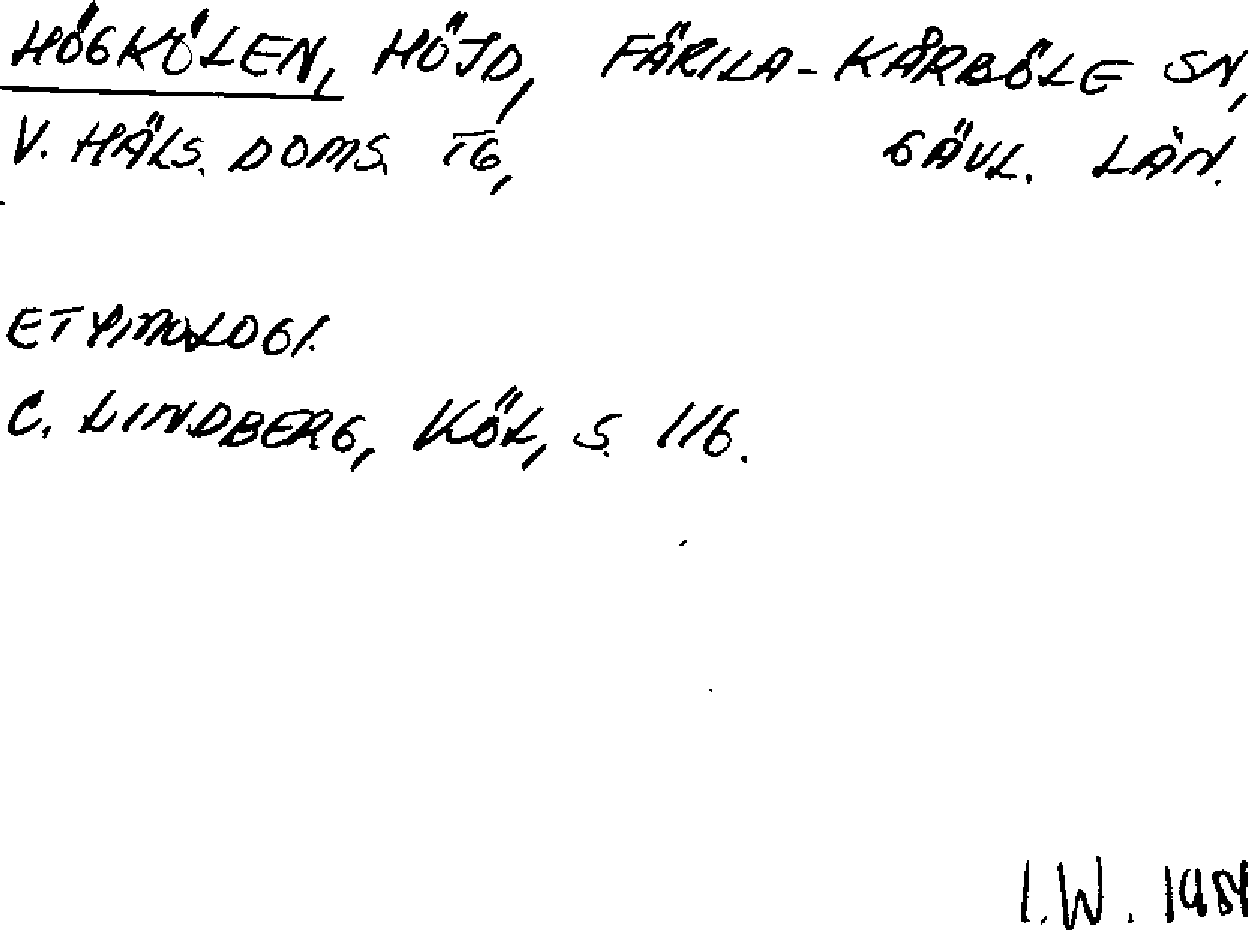 HÖGKÖLEN, HÖJD, FÄRILA-KÅRBÖLE SN,
V. HÄLS. DOMS. TG, GÄVL. LÄN.
ETYMOLOGI.
C. LINDBERG, KÖL, S. 116.
I.W.